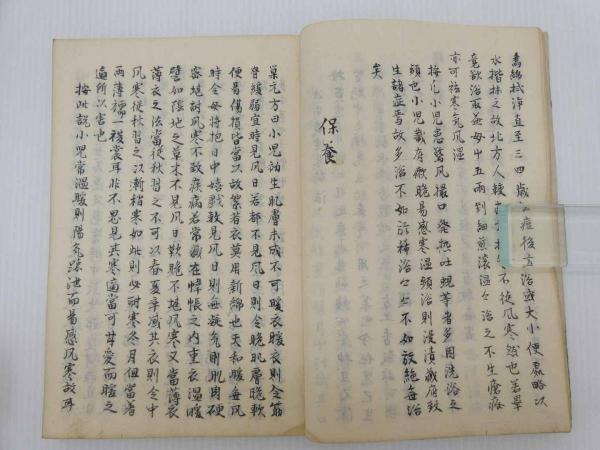 為綿拭浄直至三四歳 痘後方浴或大小便處略以
水揩抹之故北方人 不従風寒然也若畢
竟欲浴取益母艸五両剉細煎湯温々浴之不生瘡疥
亦可袪寒気風湿
按凡小児患驚風撮口發熱吐 等者多因洗浴之
頭也小児藏府微脆易感寒温頭浴則浸漬藏府致
生諸症焉故多浴不如 稀浴々々不如放絶毎浴
矣
保養
巣元方曰小児初生肌膚未成不可暖衣暖衣則令筋
骨緩弱宜時見風日若都不見風日則令肌膚脆軟
便易傷損皆當以故絮著衣莫用新綿也天和暖無風
時令母将抱日中嬉戲数見風日則血凝気剛肌肉硬
密堪耐風寒不致疾病若常藏在幃帳之内重衣温暖
譬如陰地之草木不見風日軟脆不堪風寒又當薄衣
薄衣之法當従秋習之不可以春夏卒減其衣則令中
風寒従秋習之以漸稍寒如此則必耐寒冬月但當着
両薄襦一複裳耳非不忍見其寒適當可耳愛而暖之
適所以害也
按此説小児常温暖則陽気疎洩而易感風寒故耳